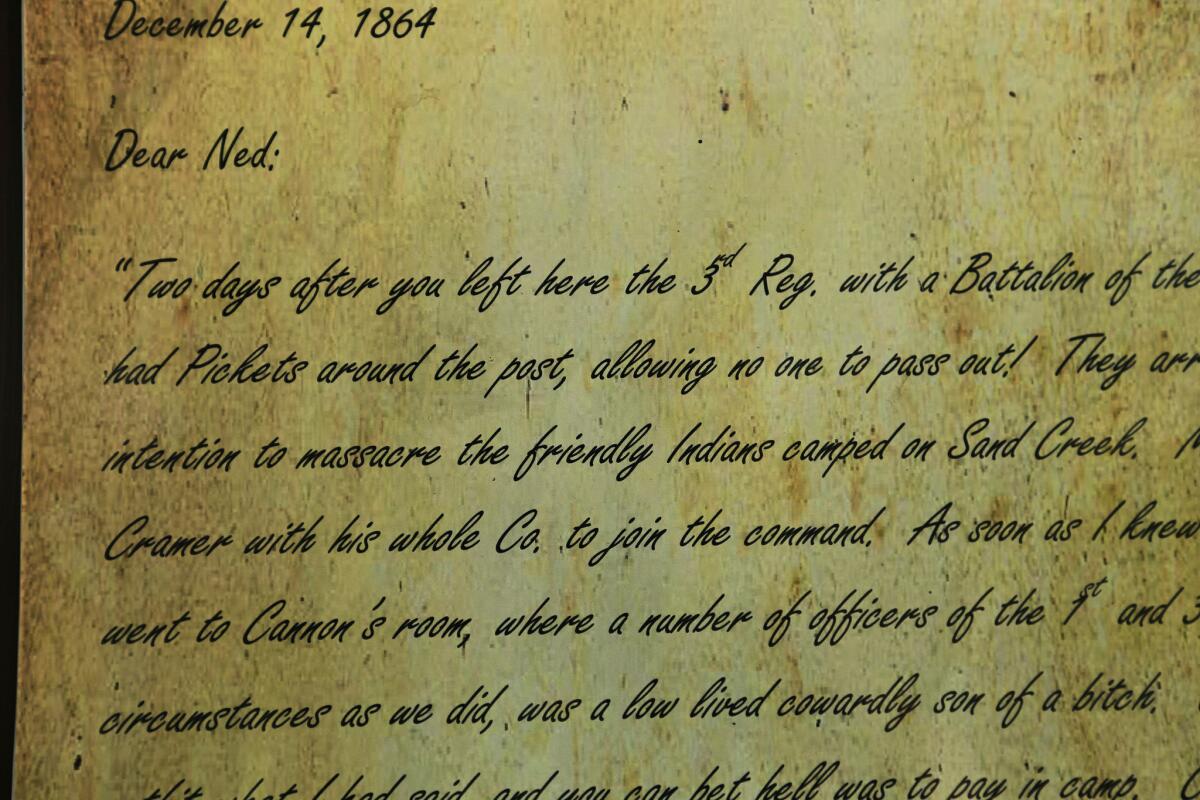 December 14, 1864
Dear Ned:
"Two days after you left here the 3rd Reg. with a Battalion of the
had Pickets around the post, allowing no one to pass out! They arr
intention to massacre the friendly Indians camped on Sand Creek.
Cramer with his whole Co. to join the command. As soon as I knew
went to Cannon's room, where a number of officers of the 1st and 3
circumstances as we did, was a low lived cowardly son of a bitch.
what I had said, and you can bet hell was to pay in camp.